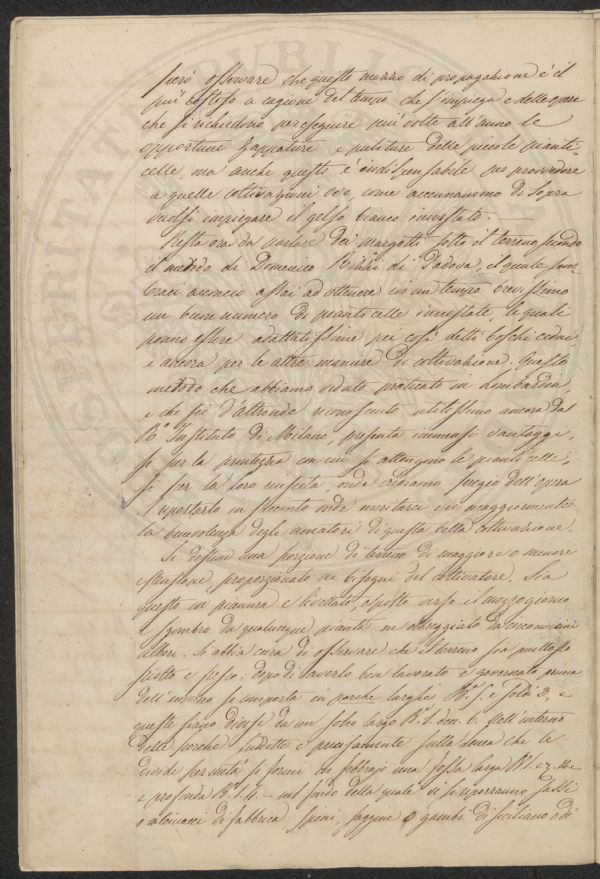 però osservare che questo mezzo di propagazione è il
più costoso a cagione del tempo che s'impiega e delle opere
che si richiedono per eseguire più volte all'anno le
opportune zappature e puliture delle piccole pianti-
celle, ma anche questo è indispensabile per provvedere
a quelle coltivazioni ove, come accennammo di sopra
vuolsi impiegare il gelso bianco innestato.
Resta ora da parlare dei margotti sotto il terreno secondo
il metodo di Domenico di Padova, il quale sem-
braci acconcio assai ad ottenere in un tempo brevissimo
un buon numero di pianticelle innestate, le quali
ponno essere adattatissime pei così detti boschi cedui,
e ancora per le altre maniere di coltivazione. Questo
metodo che abbiamo veduto praticato in Lombardia,
e che fu d'altronde riconosciuto utilissimo ancora dal
R.º Instituto di Milano, presenta immensi vantaggi,
sì per la prontezza con cui si ottengono le pianticelle,
sì per la loro riuscita onde crediamo pregio dell'opera
il riportarlo in onde meritarci vie maggiormente
la benevolenza degli amatori di questa bella coltivazione.
Si destini una porzione di terreno di maggiore o minore
estensione, proporzionato ai bisogni del coltivatore. Sia
questo in pianura e livellato, esposto verso il mezzogiorno
e sgombro da qualunque pianta nè ombreggiato da circonvicini
alberi. Si abbia cura di osservare che il terreno sia piuttosto
sciolto e fresco: dopo di averlo ben lavorato e governato prima
dell'inverno si in porche larghe e 3, e
queste siano divise da un solco largo 6. Nell'interno
delle porche suddette e precisamente sulla linea che le
divide per metà si formi in febbrajo una fossa larga
e profonda nel fondo della quale vi si riporranno sassi
o calcinacci di fabbrica, spini, saggine o gambi di siciliano o di